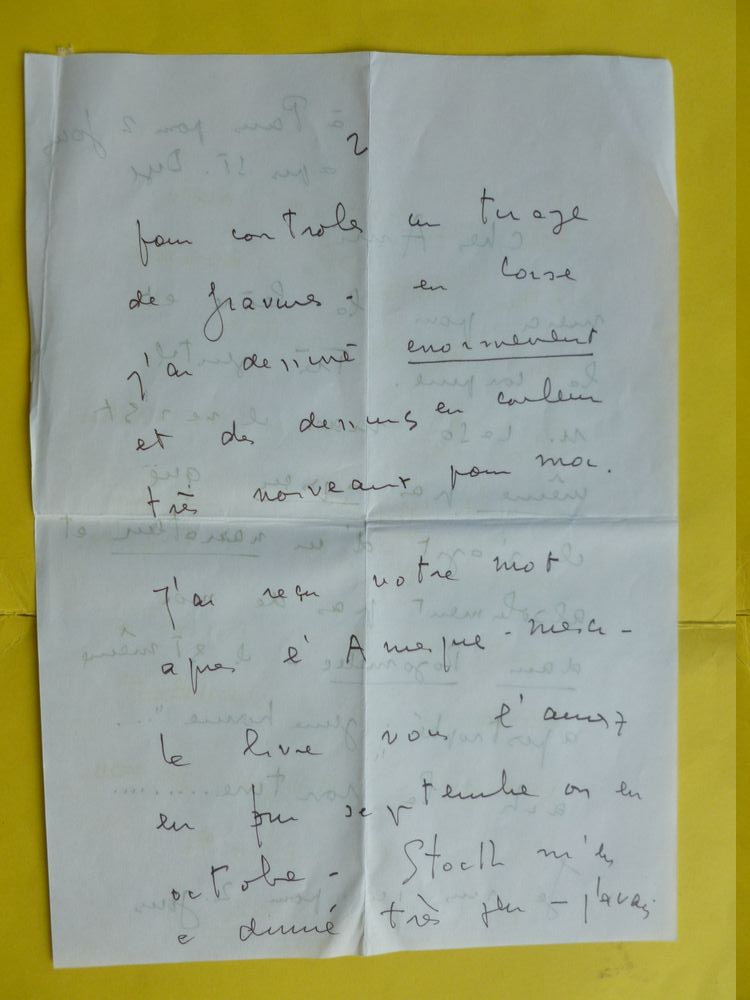 2
pour controler un tirage
de gravures - en Corse
j'ai dessiné enormement
et des dessins en couleur
très nouveaux pour moi.
J'ai reçu votre mot
apres l'Amerique - merci -
le livre vous l'aurez
en fin septembre ou en
octobre - Stock m'en
a donné très peu - j'avais